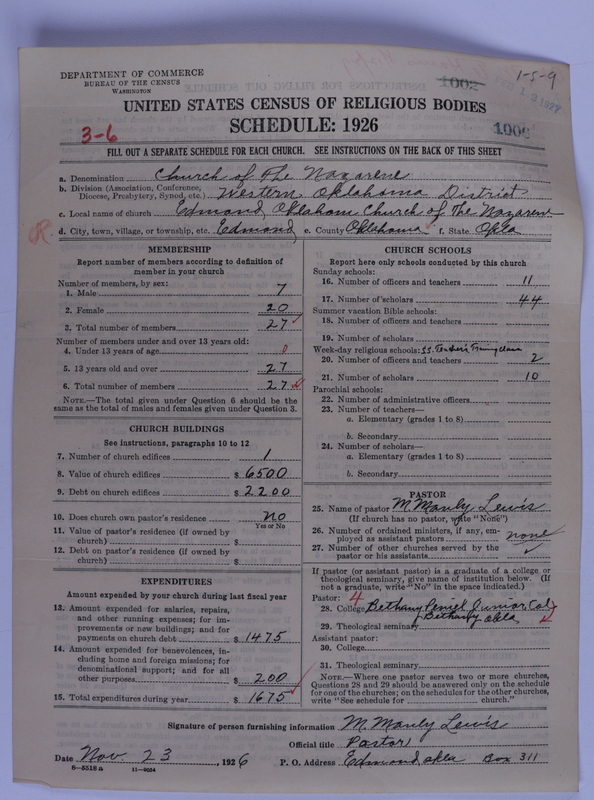 DEPARTMENT OF COMMERCE
BUREAU OF THE CENSUS
WASHINGTON
1002
1-5-9
UNITED STATES CENSUS OF RELIGIOUS BODIES
3-6
SCHEDULE: 1926
1006
FILL OUT A SEPARATE SCHEDULE FOR EACH CHURCH. SEE INSTRUCTIONS ON THE BACK OF THIS SHEET
a. Denomination Church of The Nazarene
b. Division (Association, Conference, Diocese, Presbytery, Synod, etc.) Western Oklahoma District
c. Local name of church Edmond, Oklahom Church of The Nazarene
d. City, town, village, or township, etc. Edmond e. County Oklahoma f. State Okla
MEMBERSHIP
Report number of members according to definition of
member in your church
Number of members, by sex:
1. Male 7
2. Female 20
3. Total number of members 27
Number of members under and over 13 years old:
4. Under 13 years of age 0
5. 13 years old and over 27
6. Total number of members 27
NOTE.—The total given under Question 6 should be the
same as the total of males and females given under Question 3.
CHURCH BUILDINGS
See instructions, paragraphs 10 to 12
7. Number of church edifices 1
8. Value of church edifices $ 6500
9. Debt on church edifices $ 2200
10. Does church own pastor's residence No
Yes or No
11. Value of pastor's residence (if owned by
church) $
12. Debt on pastor's residence (if owned by
church) $
EXPENDITURES
Amount expended by your church during last fiscal year
13. Amount expended for salaries, repairs,
and other running expenses; for im-
provements or new buildings; and for
payments on church debt $ 1475
14. Amount expended for benevolences, in-
cluding home and foreign missions; for
denominational support; and for all
other purposes $ 200
15. Total expenditures during year $ 1675
CHURCH SCHOOLS
Report here only schools conducted by this church
Sunday schools:
16. Number of officers and teachers 11
17. Number of scholars 44
Summer vacation Bible schools:
18. Number of officers and teachers
19. Number of scholars
Week-day religious schools: S.S. Teachers Training Class
20. Number of officers and teachers 2
21. Number of scholars 10
Parochial schools:
22. Number of administrative officers
23. Number of teachers—
a. Elementary (grades 1 to 8)
b. Secondary
24. Number of scholars—
a. Elementary (grades 1 to 8)
b. Secondary
PASTOR
25. Name of pastor M Manly Lewis
(If church has no pastor, write "None")
26. Number of ordained ministers, if any, em-
ployed as assistant pastors none
27. Number of other churches served by the
pastor or his assistants
If pastor (or assistant pastor) is a graduate of a college or
theological seminary, give name of institution below. (If
not a graduate, write "No" in the space indicated.)
Pastor: 4
28. College Bethany Peniel Junior Col
29. Theological seminary Bethany Okla
Assistant pastor:
30. College
31. Theological seminary
NOTE.—Where one pastor serves two or more churches,
Questions 28 and 29 should be answered only on the schedule
for one of the churches; on the schedules for the other churches,
write "See schedule for church."
Signature of person furnishing information M Manly Lewis
Official title Pastor
Date Nov. 23, 1926 P. O. Address Edmond, okla Box 311
8-5518a 11-9054